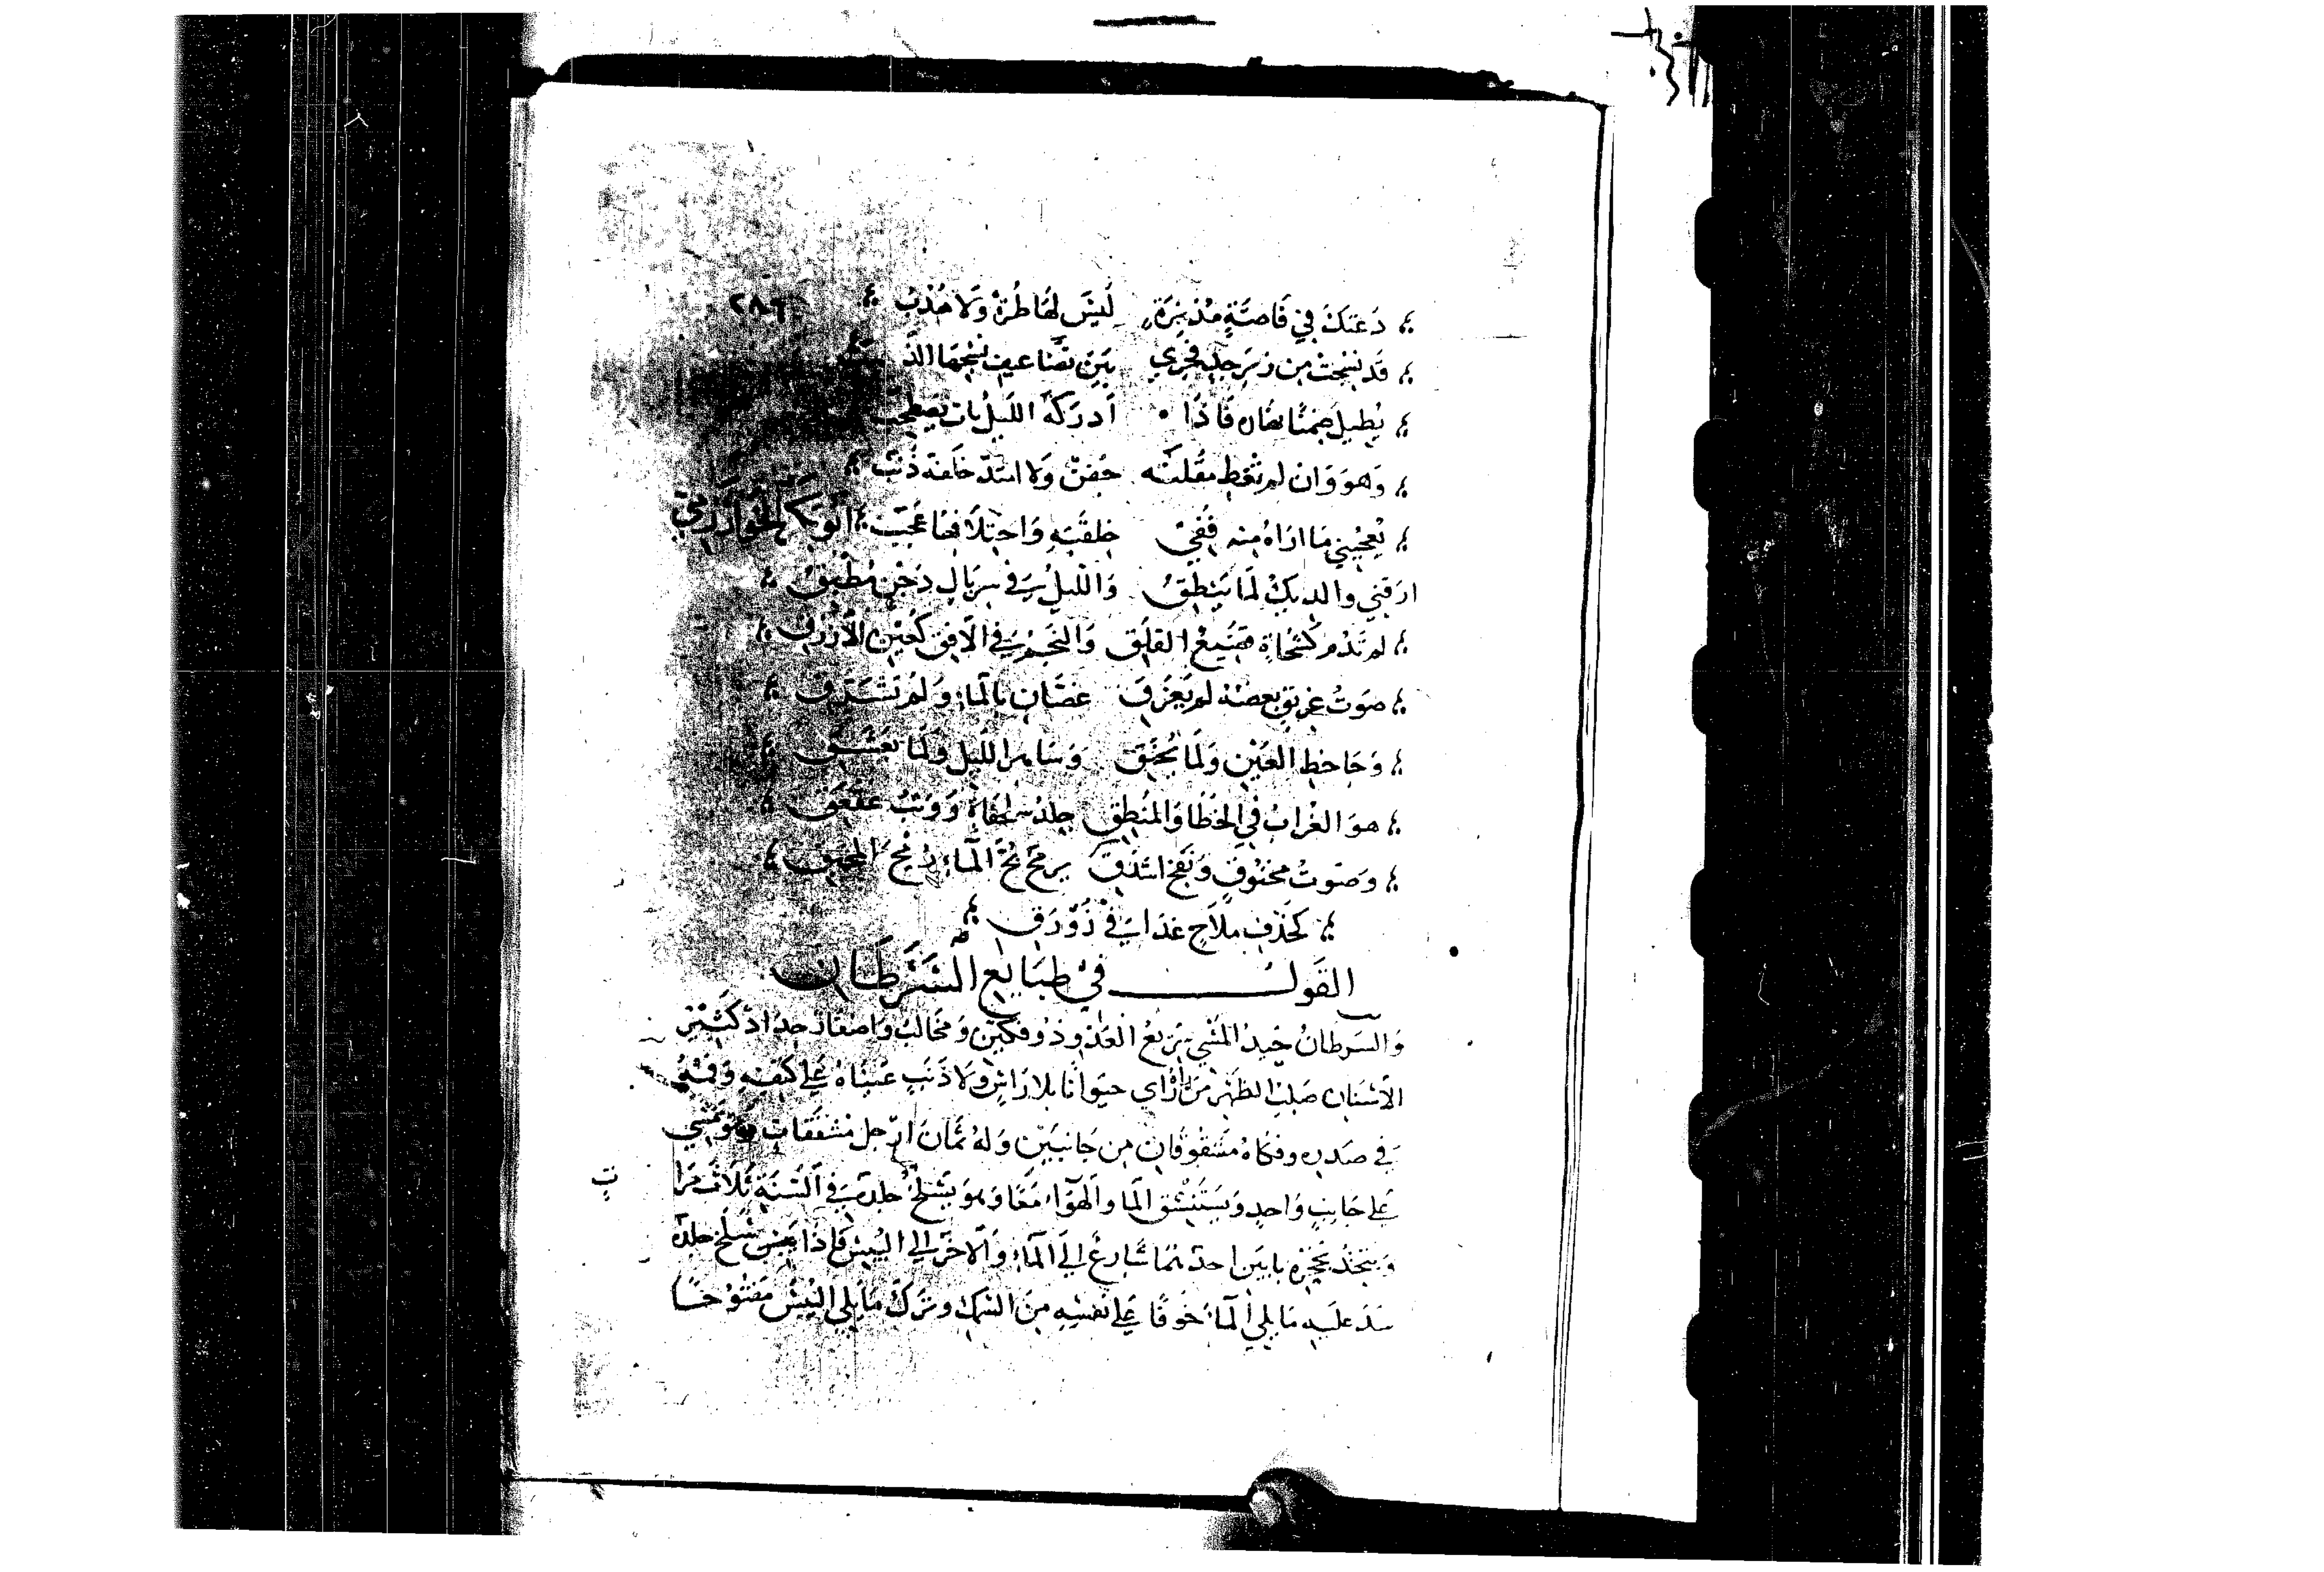 دعتك في فاضة مدنرة ليس لها طرة ولا هدب
٢٨٩
قد نسجت من زبرجد فجري بين تضاعيف نسجها
يطيل صمتا نهاره فاذا ادركه الليل بات يصطخب
وهو وان لم تغط مقلته جفن ولا استد خلفه ذنب
يعجبني ما اراه منه ففي خلقته واختلافها عجب ابو بكر الخوارزمي
ارقني والديك لما ينطق والليل في سربال دجن مطبق
لم تدم كشحاة ضيع القلق والنجم في الافق كعين الازرق
صوت غريق بعضه لم يغرق غصان بالماء ولم يشرق
وجاحظ العين ولما يخنق وساهر الليل ولما يعشق
هو الغراب في الخطا والمنطق جلد سلحفاة ووثب عقعق
وصوت مخنوق ونفخ استدق يرمح لج الماء رمح
كحذف ملاح غدا في زورق
القول في طبايع السرطان
والسرطان جيد المشي سريع العدو ذو فكين ومخالب واضفار حداد كثير
الاسنان صلب الظهر من راي حيوانا بلا راس ولا ذنب عيناه على كتفه وفمه
في صدره وفكاه مشقوقان من جانبين وله ثمان ارجل مشققات وهو يمشي
على جانب واحد ويستنشق الما والهوآ معا وهو يسلخ جلده في السنة ثلاث مرا
ت
ويتخذ لجحره بابين احدهما شارع الى المآ والاخر الى اليبس فاذا سلخ جلده
سد عليه ما يلي المآ خوفا على نفسه من السمك وترك ما يلي اليبس مفتوحا